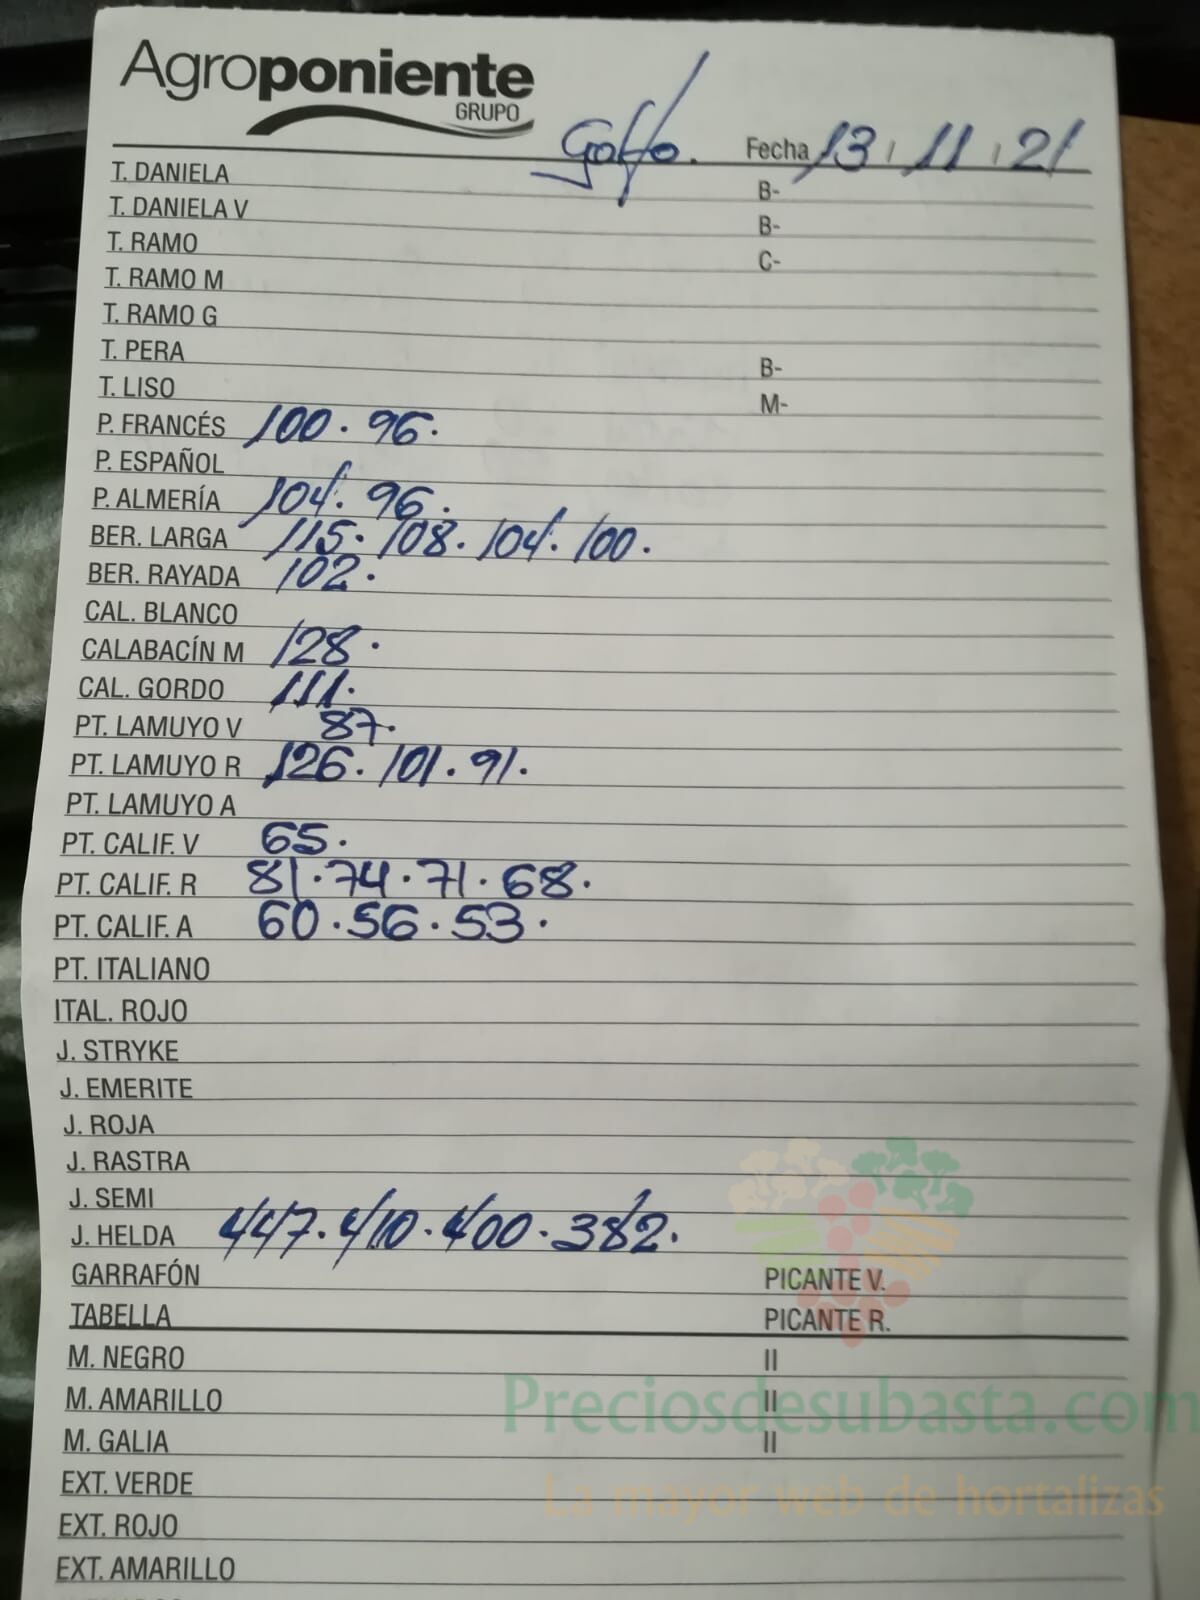 Agroponiente
GRUPO
Golfo. Fecha 13 / 11 / 21
T. DANIELA B-
T. DANIELA V B-
T. RAMO C-
T. RAMO M
T. RAMO G
T. PERA B-
T. LISO M-
P. FRANCÉS 100. 96.
P. ESPAÑOL
P. ALMERÍA 104. 96.
BER. LARGA 115. 108. 104. 100.
BER. RAYADA 102.
CAL. BLANCO
CALABACÍN M 128.
CAL. GORDO 111.
PT. LAMUYO V 87.
PT. LAMUYO R 126. 101. 91.
PT. LAMUYO A
PT. CALIF. V 65.
PT. CALIF. R 81. 74. 71. 68.
PT. CALIF. A 60. 56. 53.
PT. ITALIANO
ITAL. ROJO
J. STRYKE
J. EMERITE
J. ROJA
J. RASTRA
J. SEMI
J. HELDA 447. 410. 400. 382.
GARRAFÓN PICANTE V.
TABELLA PICANTE R.
M. NEGRO II
M. AMARILLO II
M. GALIA II
Preciosdesubasta.com
La mayor web de hortalizas
EXT. VERDE
EXT. ROJO
EXT. AMARILLO